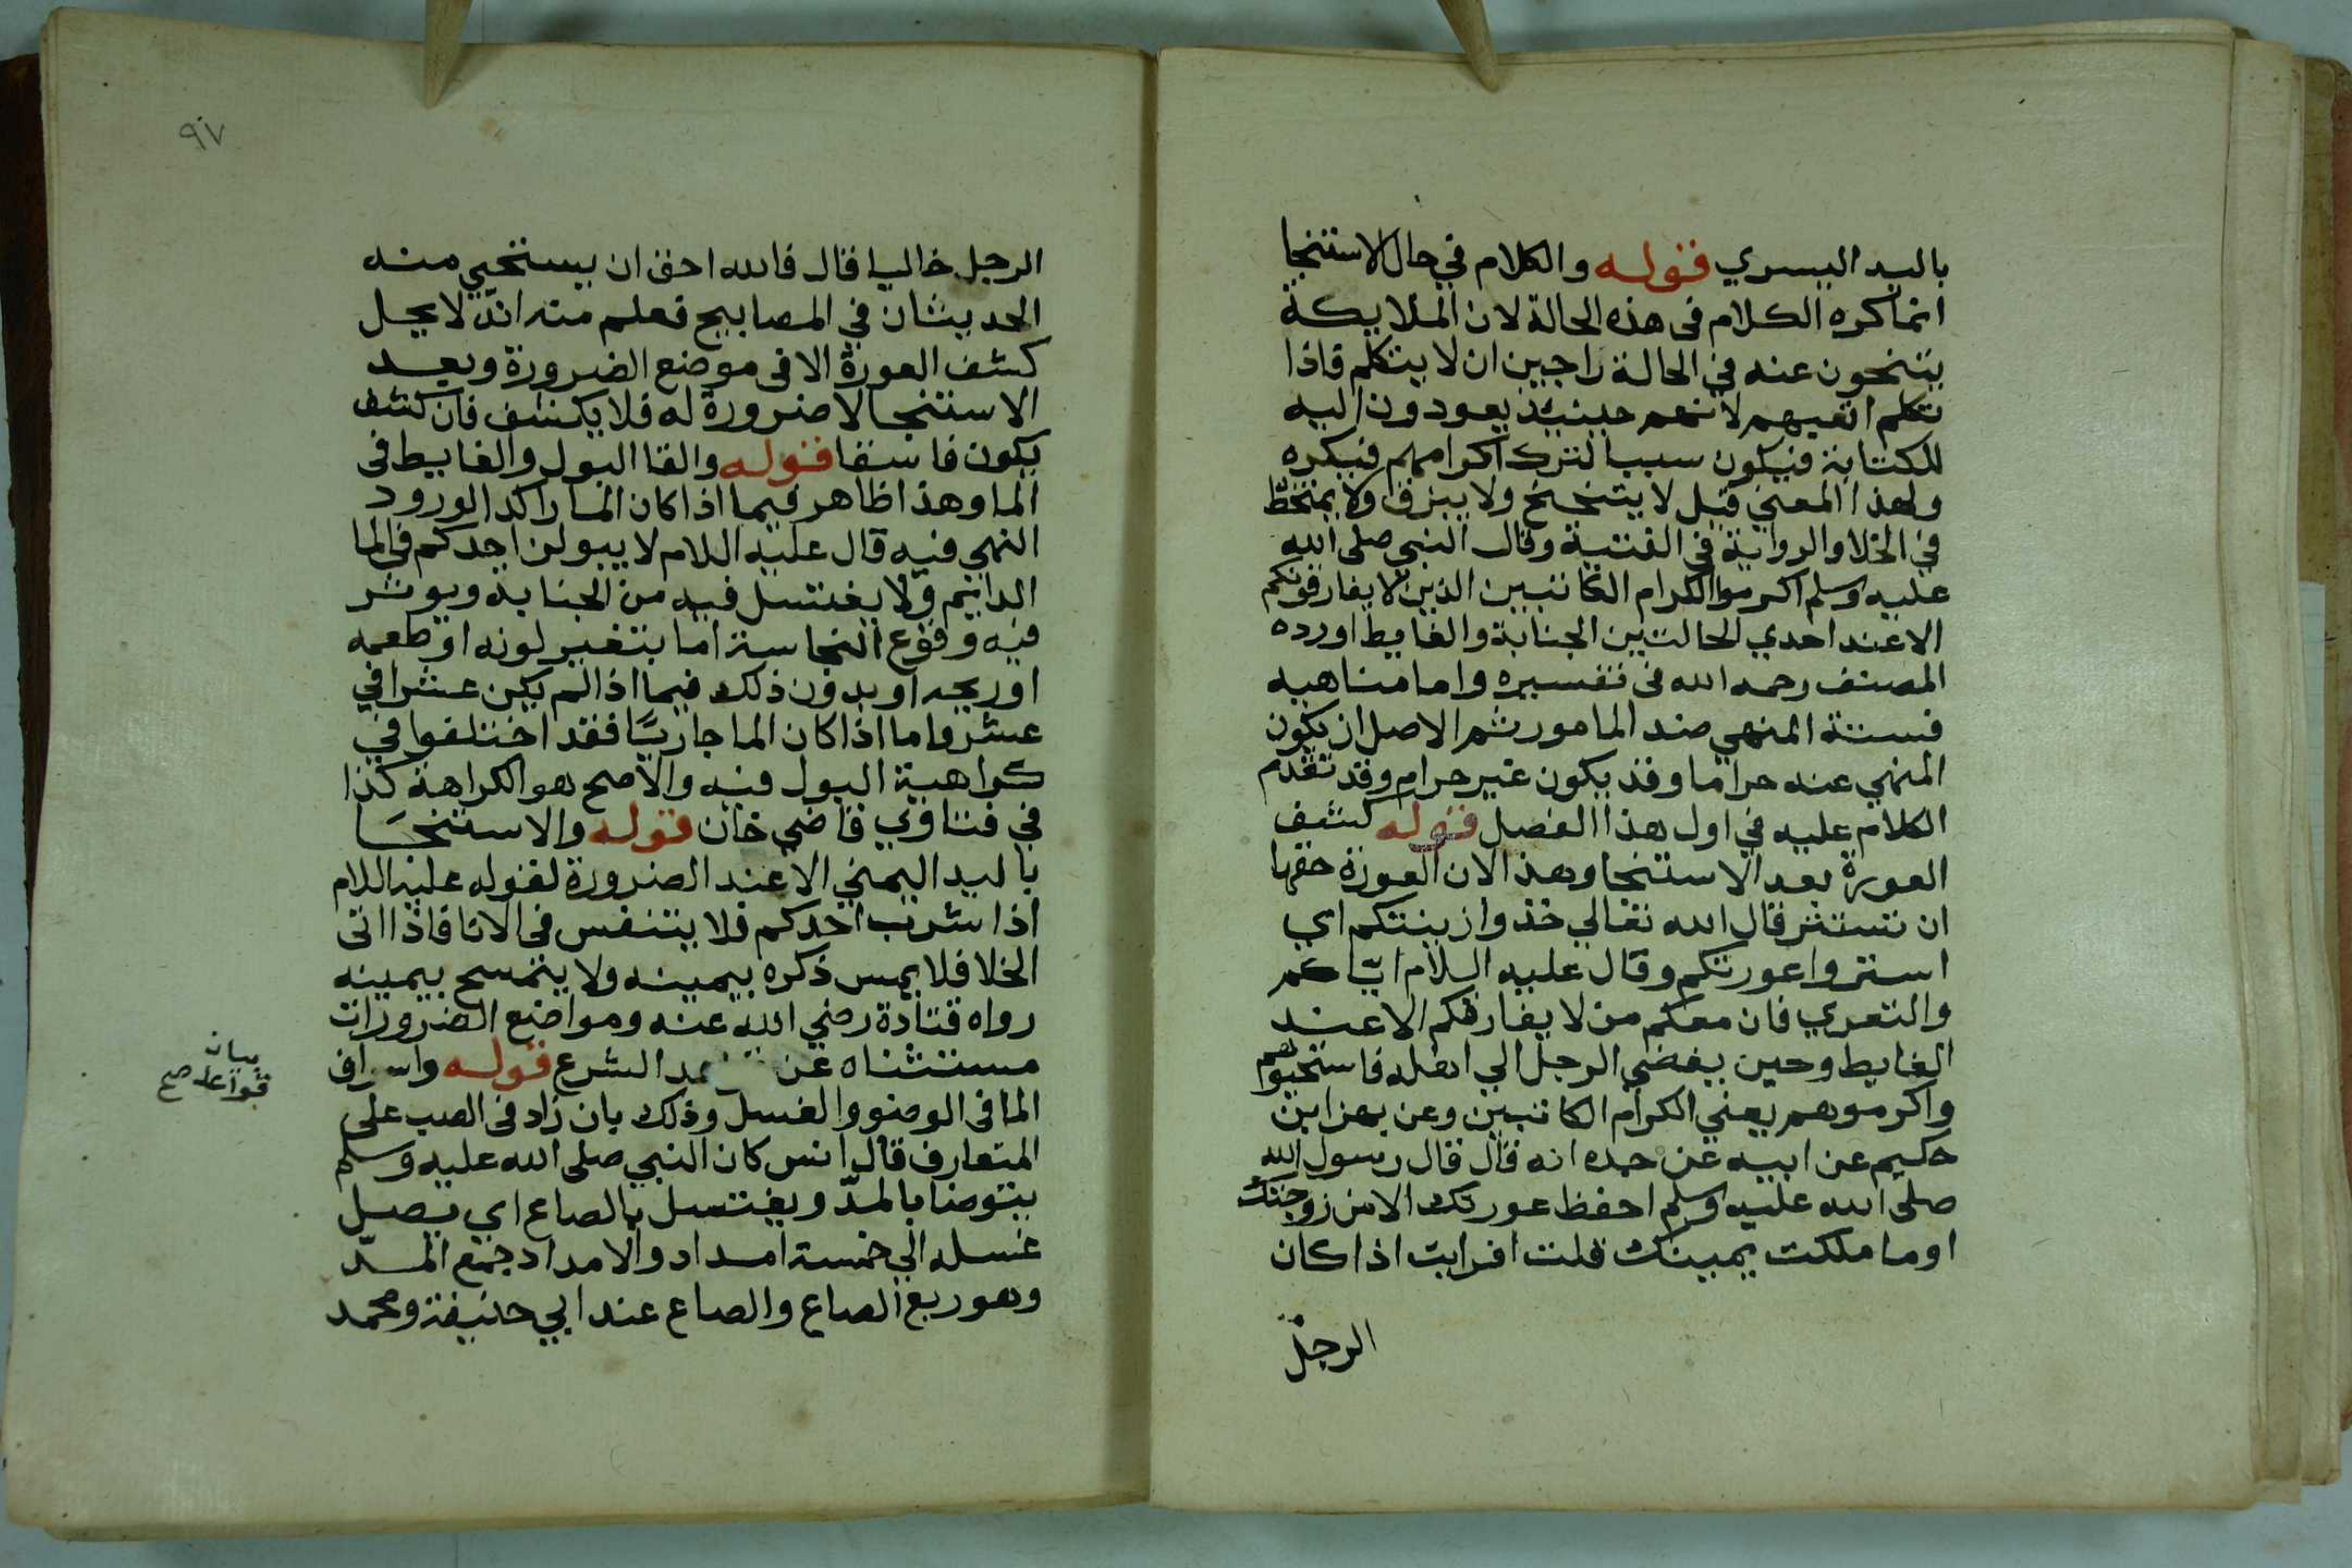 باليد اليسري قوله والكلام في حال الاستنجا
انما كره الكلام فى هذه الحالة لان الملايكة
يتنحون عنه في الحالة راجين ان لا يتكلم فاذا
تكلم اتعبهم لانهم حينيذ يعودون اليه
للكتابة فيكون سببا لترك اكرامهم فيكره
ولهذا المعني قيل لا يتنحنح ولا يبزق ولا يمتخط
في الخلا والرواية في القنية وقال النبي صلى الله
عليه وسلم اكرموا الكرام الكاتبين الذين لا يفارقونكم
الا عند احدي الحالتين الجنابة والغايط اورده
المصنف رحمه الله فى تفسيره واما مناهيه
فستة المنهي ضد المامور ثم الاصل ان يكون
المنهي عنه حراما وقد يكون غير حرام وقد تقدم
الكلام عليه في اول هذا الفصل قوله كشف
العورة بعد الاستنجا وهذا لان العورة حقها
ان تستتر قال الله تعالي خذوا زينتكم اي
استروا عورتكم وقال عليه السلام اياكم
والتعري فان معكم من لا يفارقكم الا عند
الغايط وحين يفضي الرجل الي اهله فاستحيوهم
واكرموهم يعني الكرام الكاتبين وعن بهز ابن
حكيم عن ابيه عن جده انه قال قال رسول الله
صلى الله عليه وسلم احفظ عورتك الا من زوجتك
او ما ملكت يمينك قلت افرايت اذا كان
الرجل
٩٧
الرجل خاليا قال فالله احق ان يستحيي منه
الحديثان في المصابيح فعلم منه انه لا يحل
كشف العورة الا فى موضع الضرورة وبعد
الاستنجا لا ضرورة له فلا يكشف فان كشف
يكون فاسقا قوله والقا البول والغايط فى
الما وهذا ظاهر فيما اذا كان الما راكدا لورود
النهي فيه قال عليه السلام لا يبولن احدكم في الما
الدايم ولا يغتسل فيه من الجنابة ويوثر
فيه وقوع النجاسة اما بتغير لونه او طعمه
او ريحه او بدون ذلك فيما اذا لم يكن عشرا في
عشر واما اذا كان الما جاريا فقد اختلفوا في
كراهية البول فيه والاصح هو الكراهة كذا
في فتاوي قاضي خان قوله والاستنجا
باليد اليمني الا عند الضرورة لقوله عليه السلام
اذا شرب احدكم فلا يتنفس فى الانا فاذا اتى
الخلا فلا يمس ذكره بيمينه ولا يتمسح بيمينه
رواه قتادة رضي الله عنه ومواضع الضرورات
مستثناه عن الشرع قوله واسراف
الما فى الوضو والغسل وذلك بان زاد فى الصب على
المتعارف قال انس كان النبي صلى الله عليه وسلم
يتوضا بالمد ويغتسل بالصاع اي يصل
غسله الي خمسة امداد والامداد جمع المد
وهو ربع الصاع والصاع عند ابي حنيفة ومحمد
بيان
قواعد صح